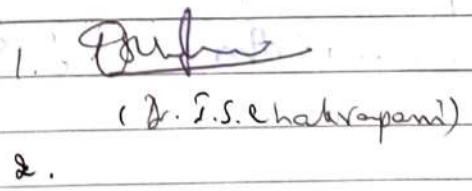 1.
(Dr. I.S. Chakrapani)
2.